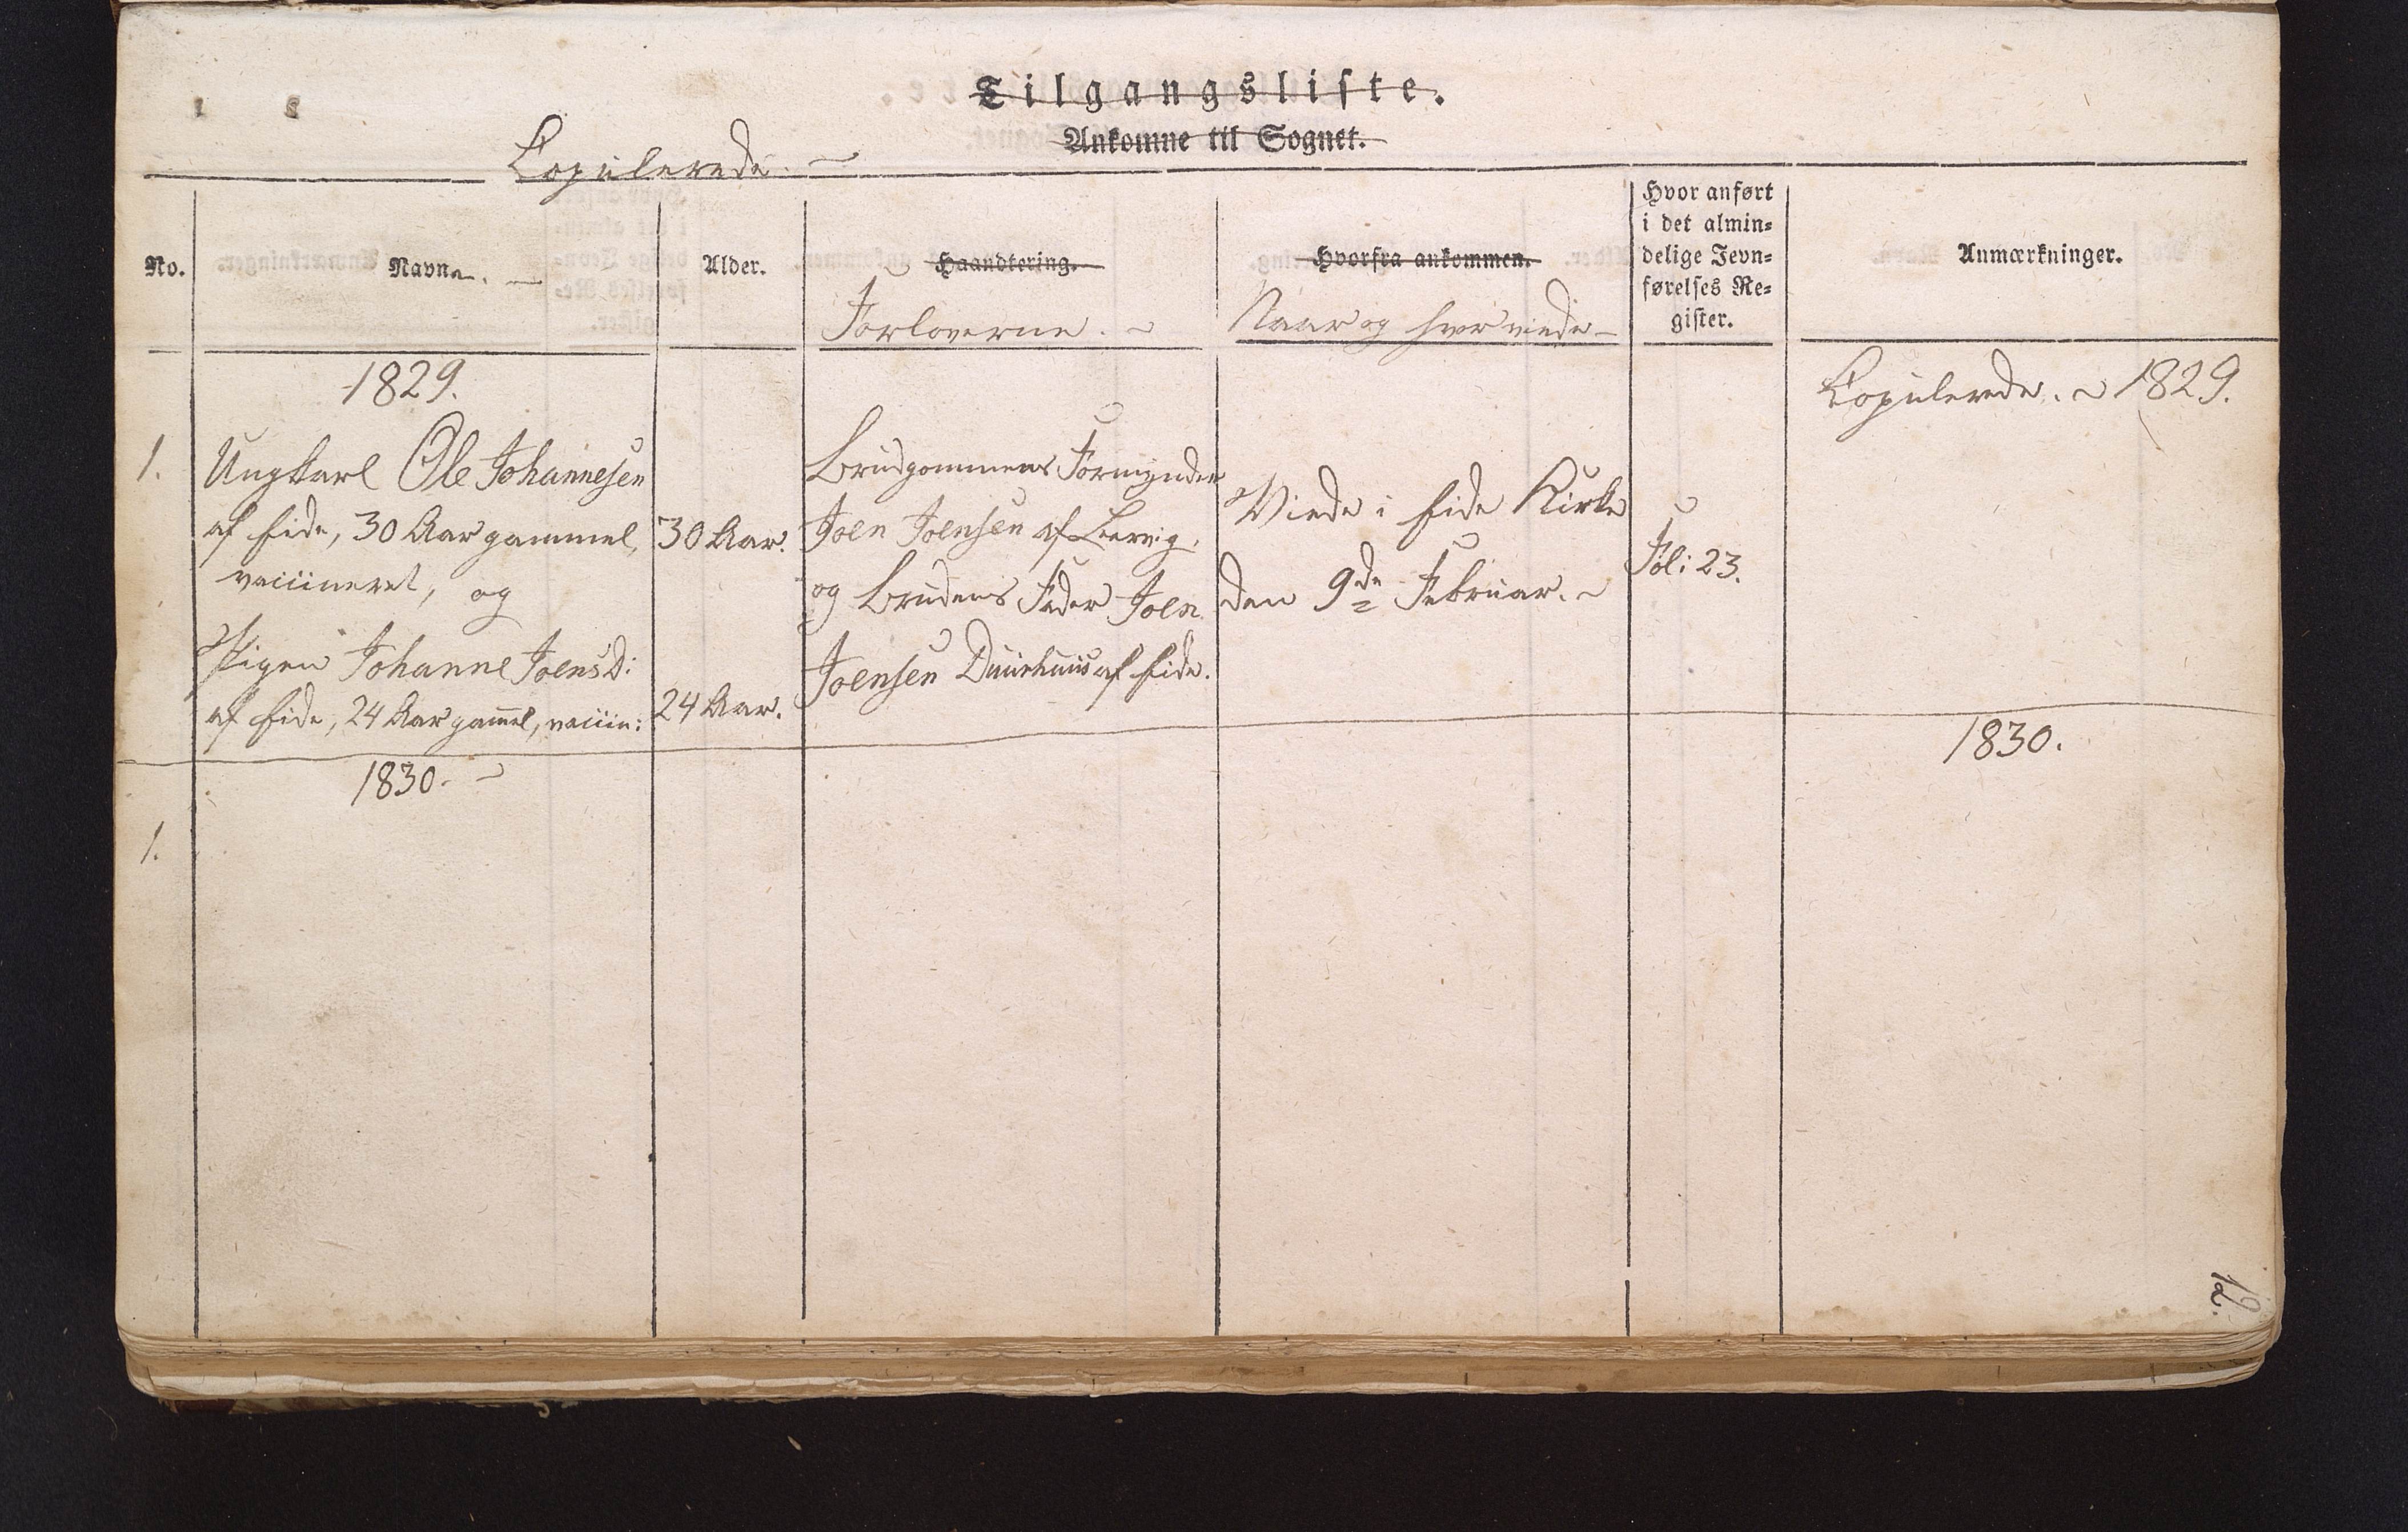 Tilgangsliste.
Ankomne til Sognet.
Copulerede.
No.
Navne.
Alder.
Haandtering.
Forloverne.
Hvorfra ankommen.
Naar og hvor viede
Hvor anført
i det almin-
delige Jevn-
førelses Re-
gister.
Anmærkninger.
1829.
Copulerede. 1829.
1.
Ungkarl Ole Johannesen
af Eide, 30 Aar gammel,
vaccineret, og
Pigen Johanne JoensD:
af Eide, 24 Aar gam̄el, vaccin:
30 Aar.
24 Aar.
Brudgommens Formynder
Joen Joensen af Leervig.
og Brudens Fader Joen
Joensen Duurhuus af Eide.
Viede i Eide Kirke
den 9de Februar.
Fol: 23.
1830.
1830.
1.
12.